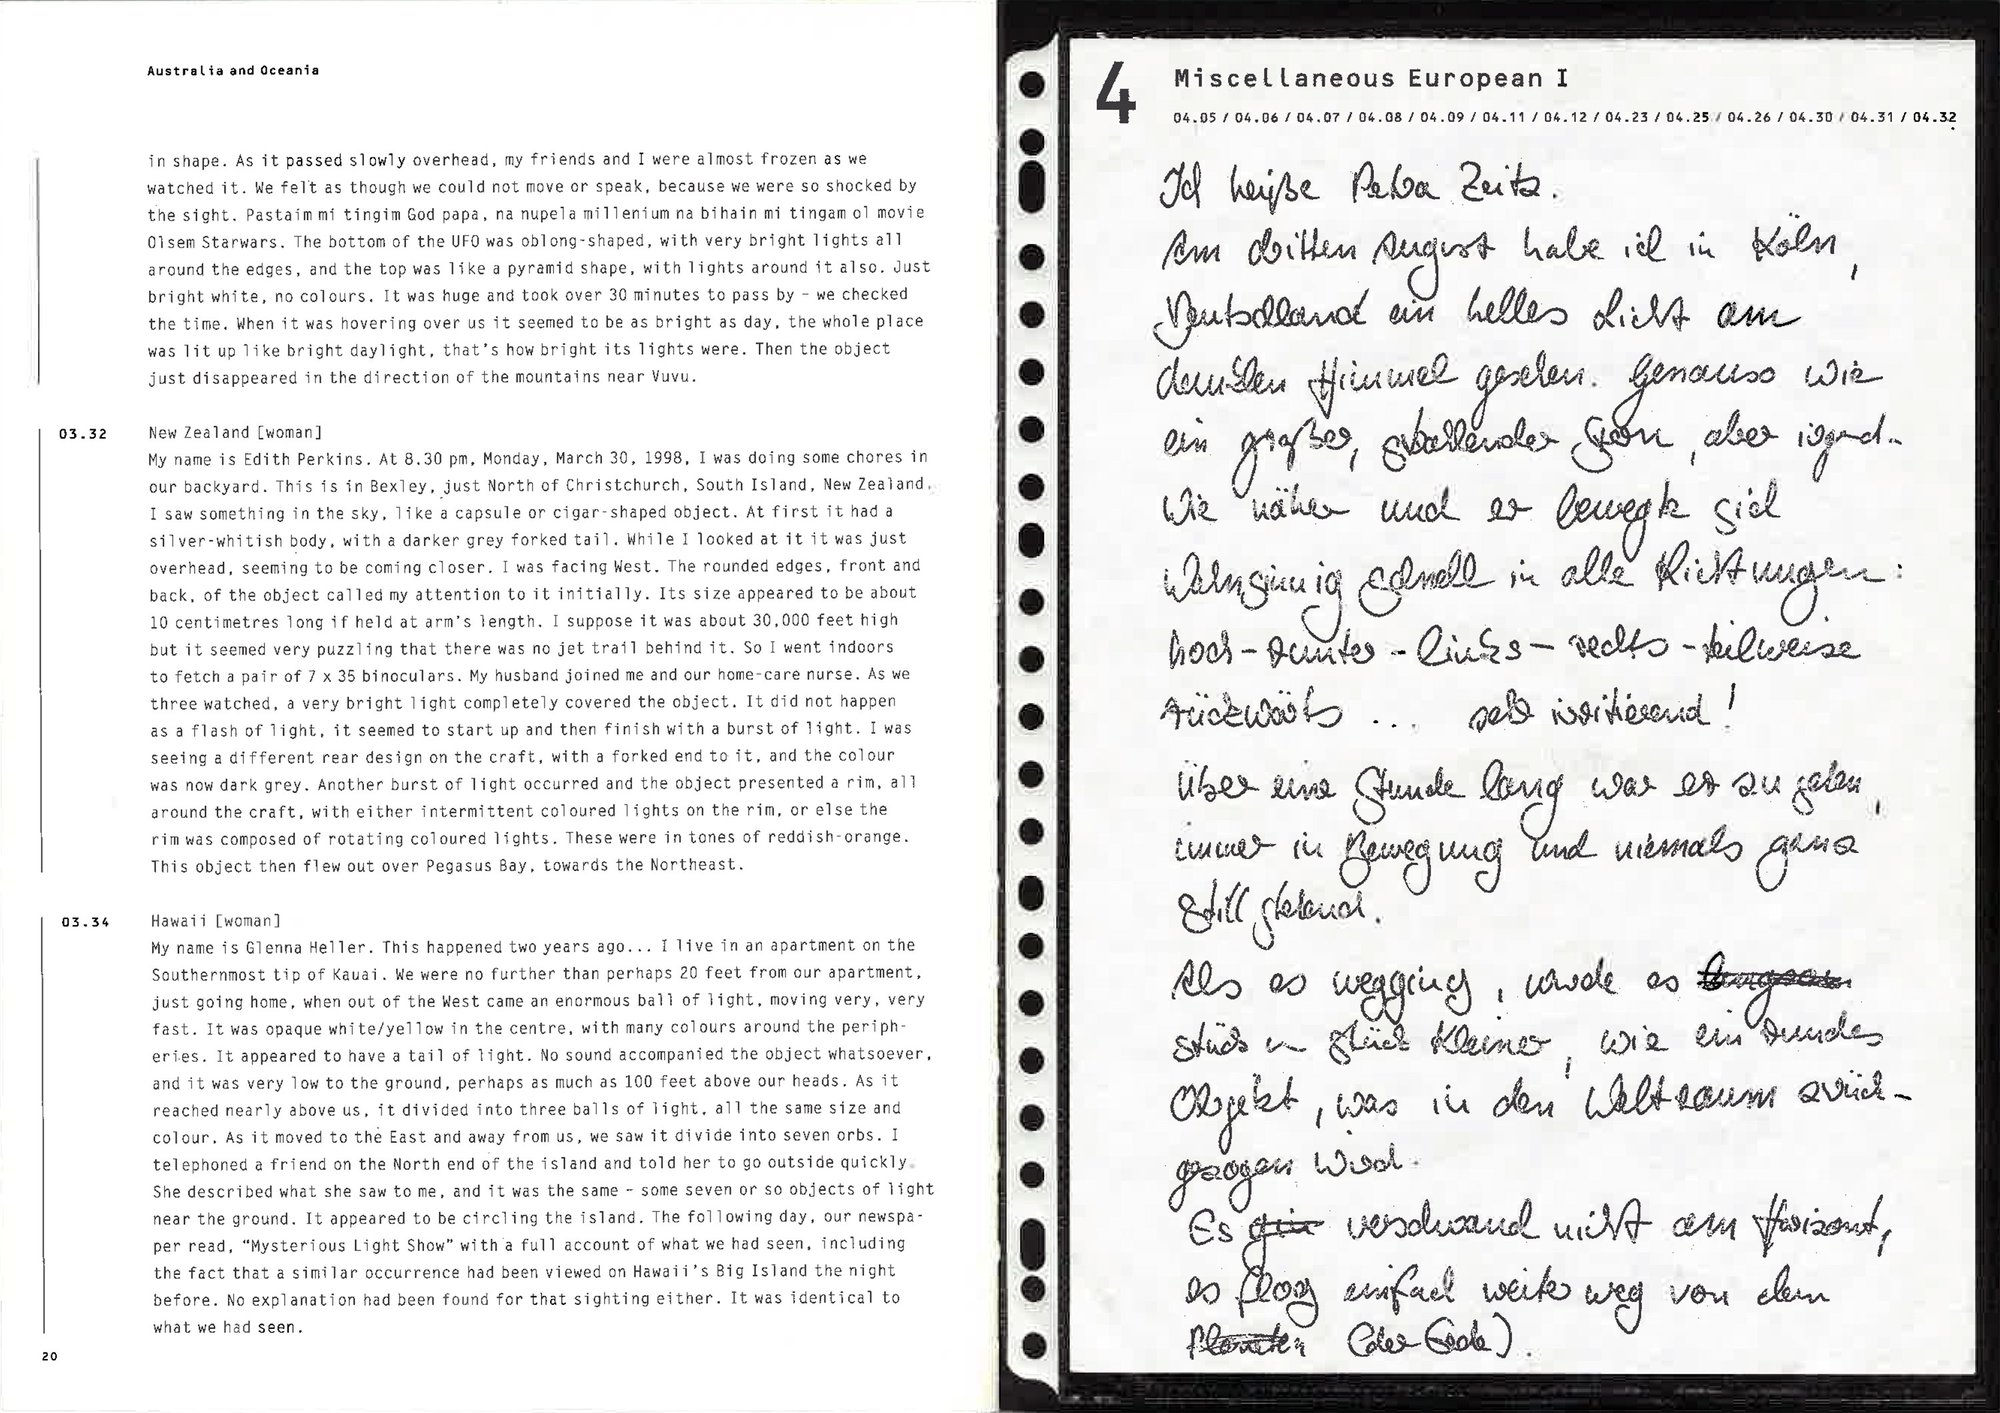 Australia and Oceania
in shape. As it passed slowly overhead, my friends and I were almost frozen as we
watched it. We felt as though we could not move or speak, because we were so shocked by
the sight. Pastaim mi tingim God papa, na nupela millenium na bihain mi tingam ol movie
Olsem Starwars. The bottom of the UFO was oblong-shaped, with very bright lights all
around the edges, and the top was like a pyramid shape, with lights around it also. Just
bright white, no colours. It was huge and took over 30 minutes to pass by – we checked
the time. When it was hovering over us it seemed to be as bright as day, the whole place
was lit up like bright daylight, that's how bright its lights were. Then the object
just disappeared in the direction of the mountains near Vuvu.
03.32 New Zealand [woman]
My name is Edith Perkins. At 8.30 pm, Monday, March 30, 1998, I was doing some chores in
our backyard. This is in Bexley, just North of Christchurch, South Island, New Zealand.
I saw something in the sky, like a capsule or cigar-shaped object. At first it had a
silver-whitish body, with a darker grey forked tail. While I looked at it it was just
overhead, seeming to be coming closer. I was facing West. The rounded edges, front and
back, of the object called my attention to it initially. Its size appeared to be about
10 centimetres long if held at arm's length. I suppose it was about 30,000 feet high
but it seemed very puzzling that there was no jet trail behind it. So I went indoors
to fetch a pair of 7 x 35 binoculars. My husband joined me and our home-care nurse. As we
three watched, a very bright light completely covered the object. It did not happen
as a flash of light, it seemed to start up and then finish with a burst of light. I was
seeing a different rear design on the craft, with a forked end to it, and the colour
was now dark grey. Another burst of light occurred and the object presented a rim, all
around the craft, with either intermittent coloured lights on the rim, or else the
rim was composed of rotating coloured lights. These were in tones of reddish-orange.
This object then flew out over Pegasus Bay, towards the Northeast.
03.34 Hawaii [woman]
My name is Glenna Heller. This happened two years ago... I live in an apartment on the
Southernmost tip of Kauai. We were no further than perhaps 20 feet from our apartment,
just going home, when out of the West came an enormous ball of light, moving very, very
fast. It was opaque white/yellow in the centre, with many colours around the periph-
eries. It appeared to have a tail of light. No sound accompanied the object whatsoever,
and it was very low to the ground, perhaps as much as 100 feet above our heads. As it
reached nearly above us, it divided into three balls of light, all the same size and
colour. As it moved to the East and away from us, we saw it divide into seven orbs. I
telephoned a friend on the North end of the island and told her to go outside quickly.
She described what she saw to me, and it was the same – some seven or so objects of light
near the ground. It appeared to be circling the island. The following day, our newspa-
per read, “Mysterious Light Show” with a full account of what we had seen, including
the fact that a similar occurrence had been viewed on Hawaii's Big Island the night
before. No explanation had been found for that sighting either. It was identical to
what we had seen.
20
4 Miscellaneous European I
04.05 / 04.06 / 04.07 / 04.08 / 04.09 / 04.11 / 04.12 / 04.23 / 04.25 / 04.26 / 04.30 / 04.31 / 04.32
Ich heiße Petra Zeitz.
Am dritten August habe ich in Köln,
Deutschland ein helles Licht am
dunklen Himmel gesehen. Genauso wie
ein großer, strahlender Stern, aber irgend-
wie näher und er bewegte sich
wahnsinnig schnell in alle Richtungen:
hoch - runter - links - rechts - teilweise
rückwärts ... sehr irritierend!
Über eine Stunde lang war er zu sehen,
immer in Bewegung und niemals ganz
still stehend.
Als es wegging, wurde es langsam
stück u stück kleiner, wie ein rundes
Objekt, was in den Weltraum zurück-
gezogen wird.
Es verschwand nicht am Horizont,
es flog einfach weiter weg von dem
Planeten (der Erde).